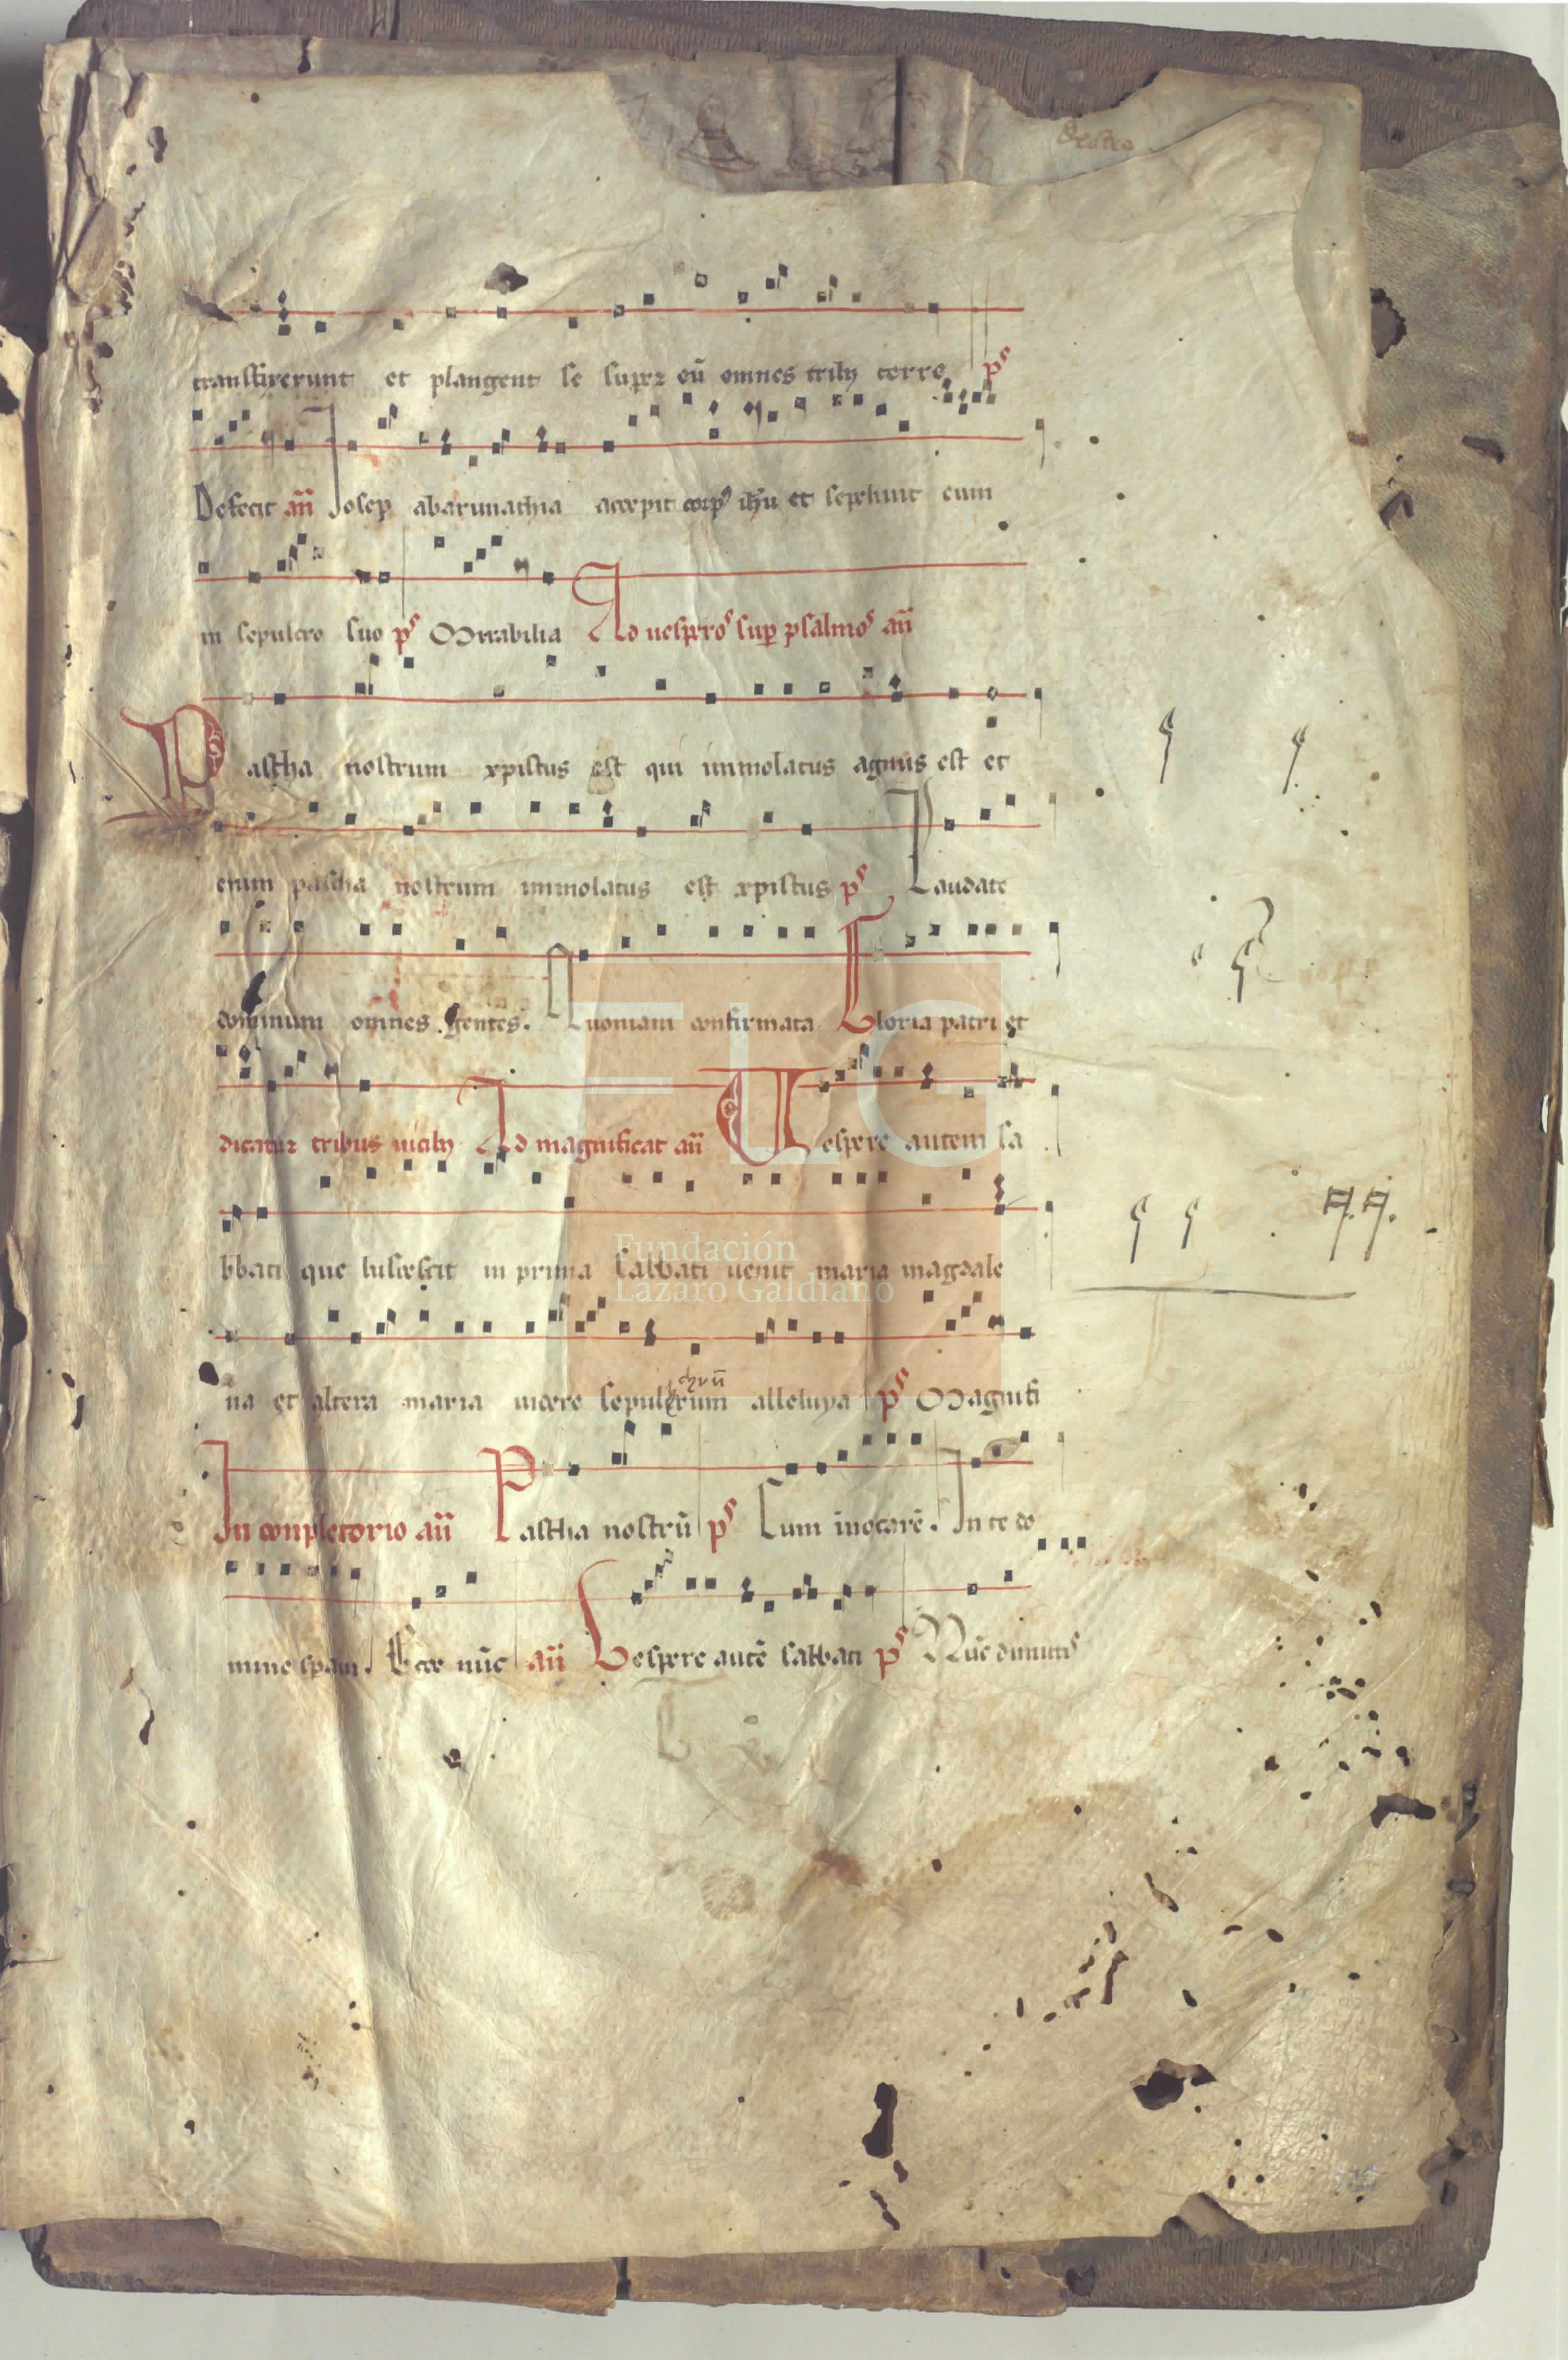 desra
transfixerunt et plangent se super eū omnes tribȝ terre pˢ
Defecit añ Josep abarimathia accepit corpꝰ ihu et sepeliuit eum
in sepulcro suo pˢ Mirabilia Ad uesperoˢ sup psalmoˢ añ
Pascha nostrum xpistus est qui immolatus agnus est et
enim pascha nostrum immolatus est xpistus pˢ Laudate
dominum omnes gentes. Quoniam confirmata Gloria patri et
dicatur tribus uicibȝ Ad magnificat añ Uespere autem sa
bbati que lucescit in prima sabbati uenit maria magdale
na et altera maria uidere sepulcrum alleluya pˢ Magnifi
chrū
In conpletorio añ Pascha nostrū pˢ Cum inuocarē. In te do
mine speraui. Ecce nūc añ Vespere autē sabbati pˢ Nūc dimittiˢ
Fundación
Lázaro Galdiano
FLG